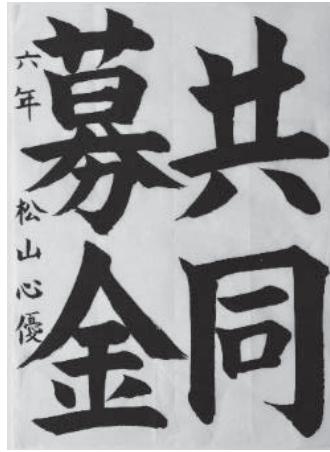 共同
募金
六年 松山心優